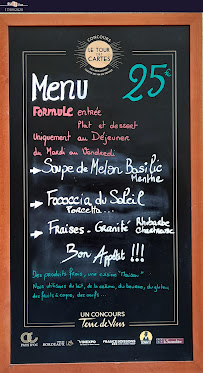 CONCOURS
LE TOUR
DES
CARTES
Menu 25€
FORMULE entrée
Plat et dessert
Uniquement au Déjeuner
du Mardi au Vendredi
Soupe de Melon Basilic
Menthe
Focaccia du Soleil
Porcetta...
Fraises - Granité Rhubarbe
Bon Appétit !!!
Des produits frais, une cuisine "Maison"
Nous utilisons du lait, de la crème, du beurre, du gluten
des fruits à coques, des oeufs...
UN CONCOURS
Terre de Vins